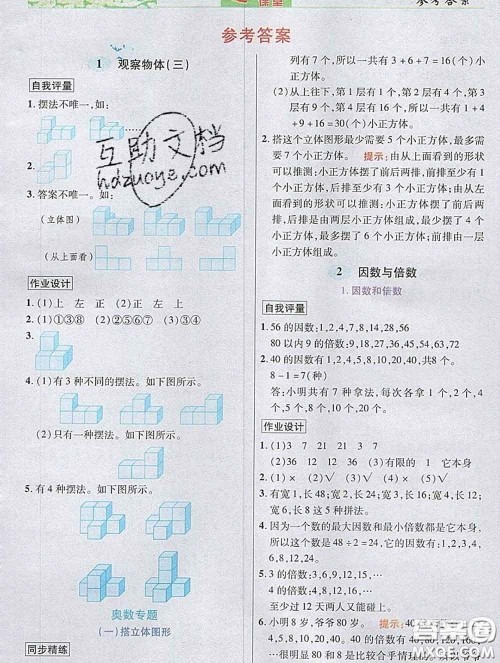 课堂
参考答案
参考答案
1 观察物体(三)
自我评量
1. 摆法不唯一,如:
2.
3. 答案不唯一。如:
(立体图)
(从上面看)
作业设计
1. (1)上 左 正 (2)正 上 左
2. (1)①③⑧ (2)②④⑤⑥⑦
3.
4. (1)有3种不同的摆法。如下图所示。
(2)只有一种摆法。如下图所示。
5. 有4种摆法。如下图所示。
奥数专题
(一)搭立体图形
同步精练
列有7个,所以一共有3+6+7=16(个)小
正方体。
(2)从上往下,第1层有1个,第2层有4个,第
3层有9个,第4层有16个,所以一共有1+4
+9+16=30(个)小正方体。
2. 搭这个立体图形最少需要5个小正方体,最多
需要7个小正方体。 提示:由从上面看到的形状
可以推测:小正方体摆了前后两排,前排有1个
小正方体,后排至少有3个小正方体;由从左
面看到的形状可以推测,后排最多摆了6个小
正方体,后排是由两层小正方体组成,最少摆了
4个小正方体,最多摆了6个小正方体,前排由
一层小正方体组成。
2 因数与倍数
1.因数和倍数
自我评量
1. 56的因数:1,2,4,7,8,14,28,56
80以内9的倍数:9,18,27,36,45,54,63,72
2. 40的因数有1,2,4,5,8,10,20,40,共8个。
8-1=7(种)
答:小明共有7种拿法,每次各拿1个、2个、4
个、5个、8个、10个、20个。
作业设计
1. (1)3 7 21 21 3 7
(2)36 12 12 36 (3)有限的 1 它本身
2. (1)× (2)√ (3)√ (4)×
3. 有宽1,长48;宽2,长24;宽3,长16;宽4,长
12;宽6,长8这5种拼法。
4. 因为一个数的最大因数和最小倍数都是它本身,
所以这个数是48÷2=24,它的因数有1,2,3,4,
6,8,12,24。
5. 3的倍数:3,6,9,12,15,…
4的倍数:4,8,12,16,…
至少过12天两人又能相遇。
6. 小明8岁,爷爷80岁。 提示:40
互助文档
hdzuoye.com
答案圈
MXQE.COM